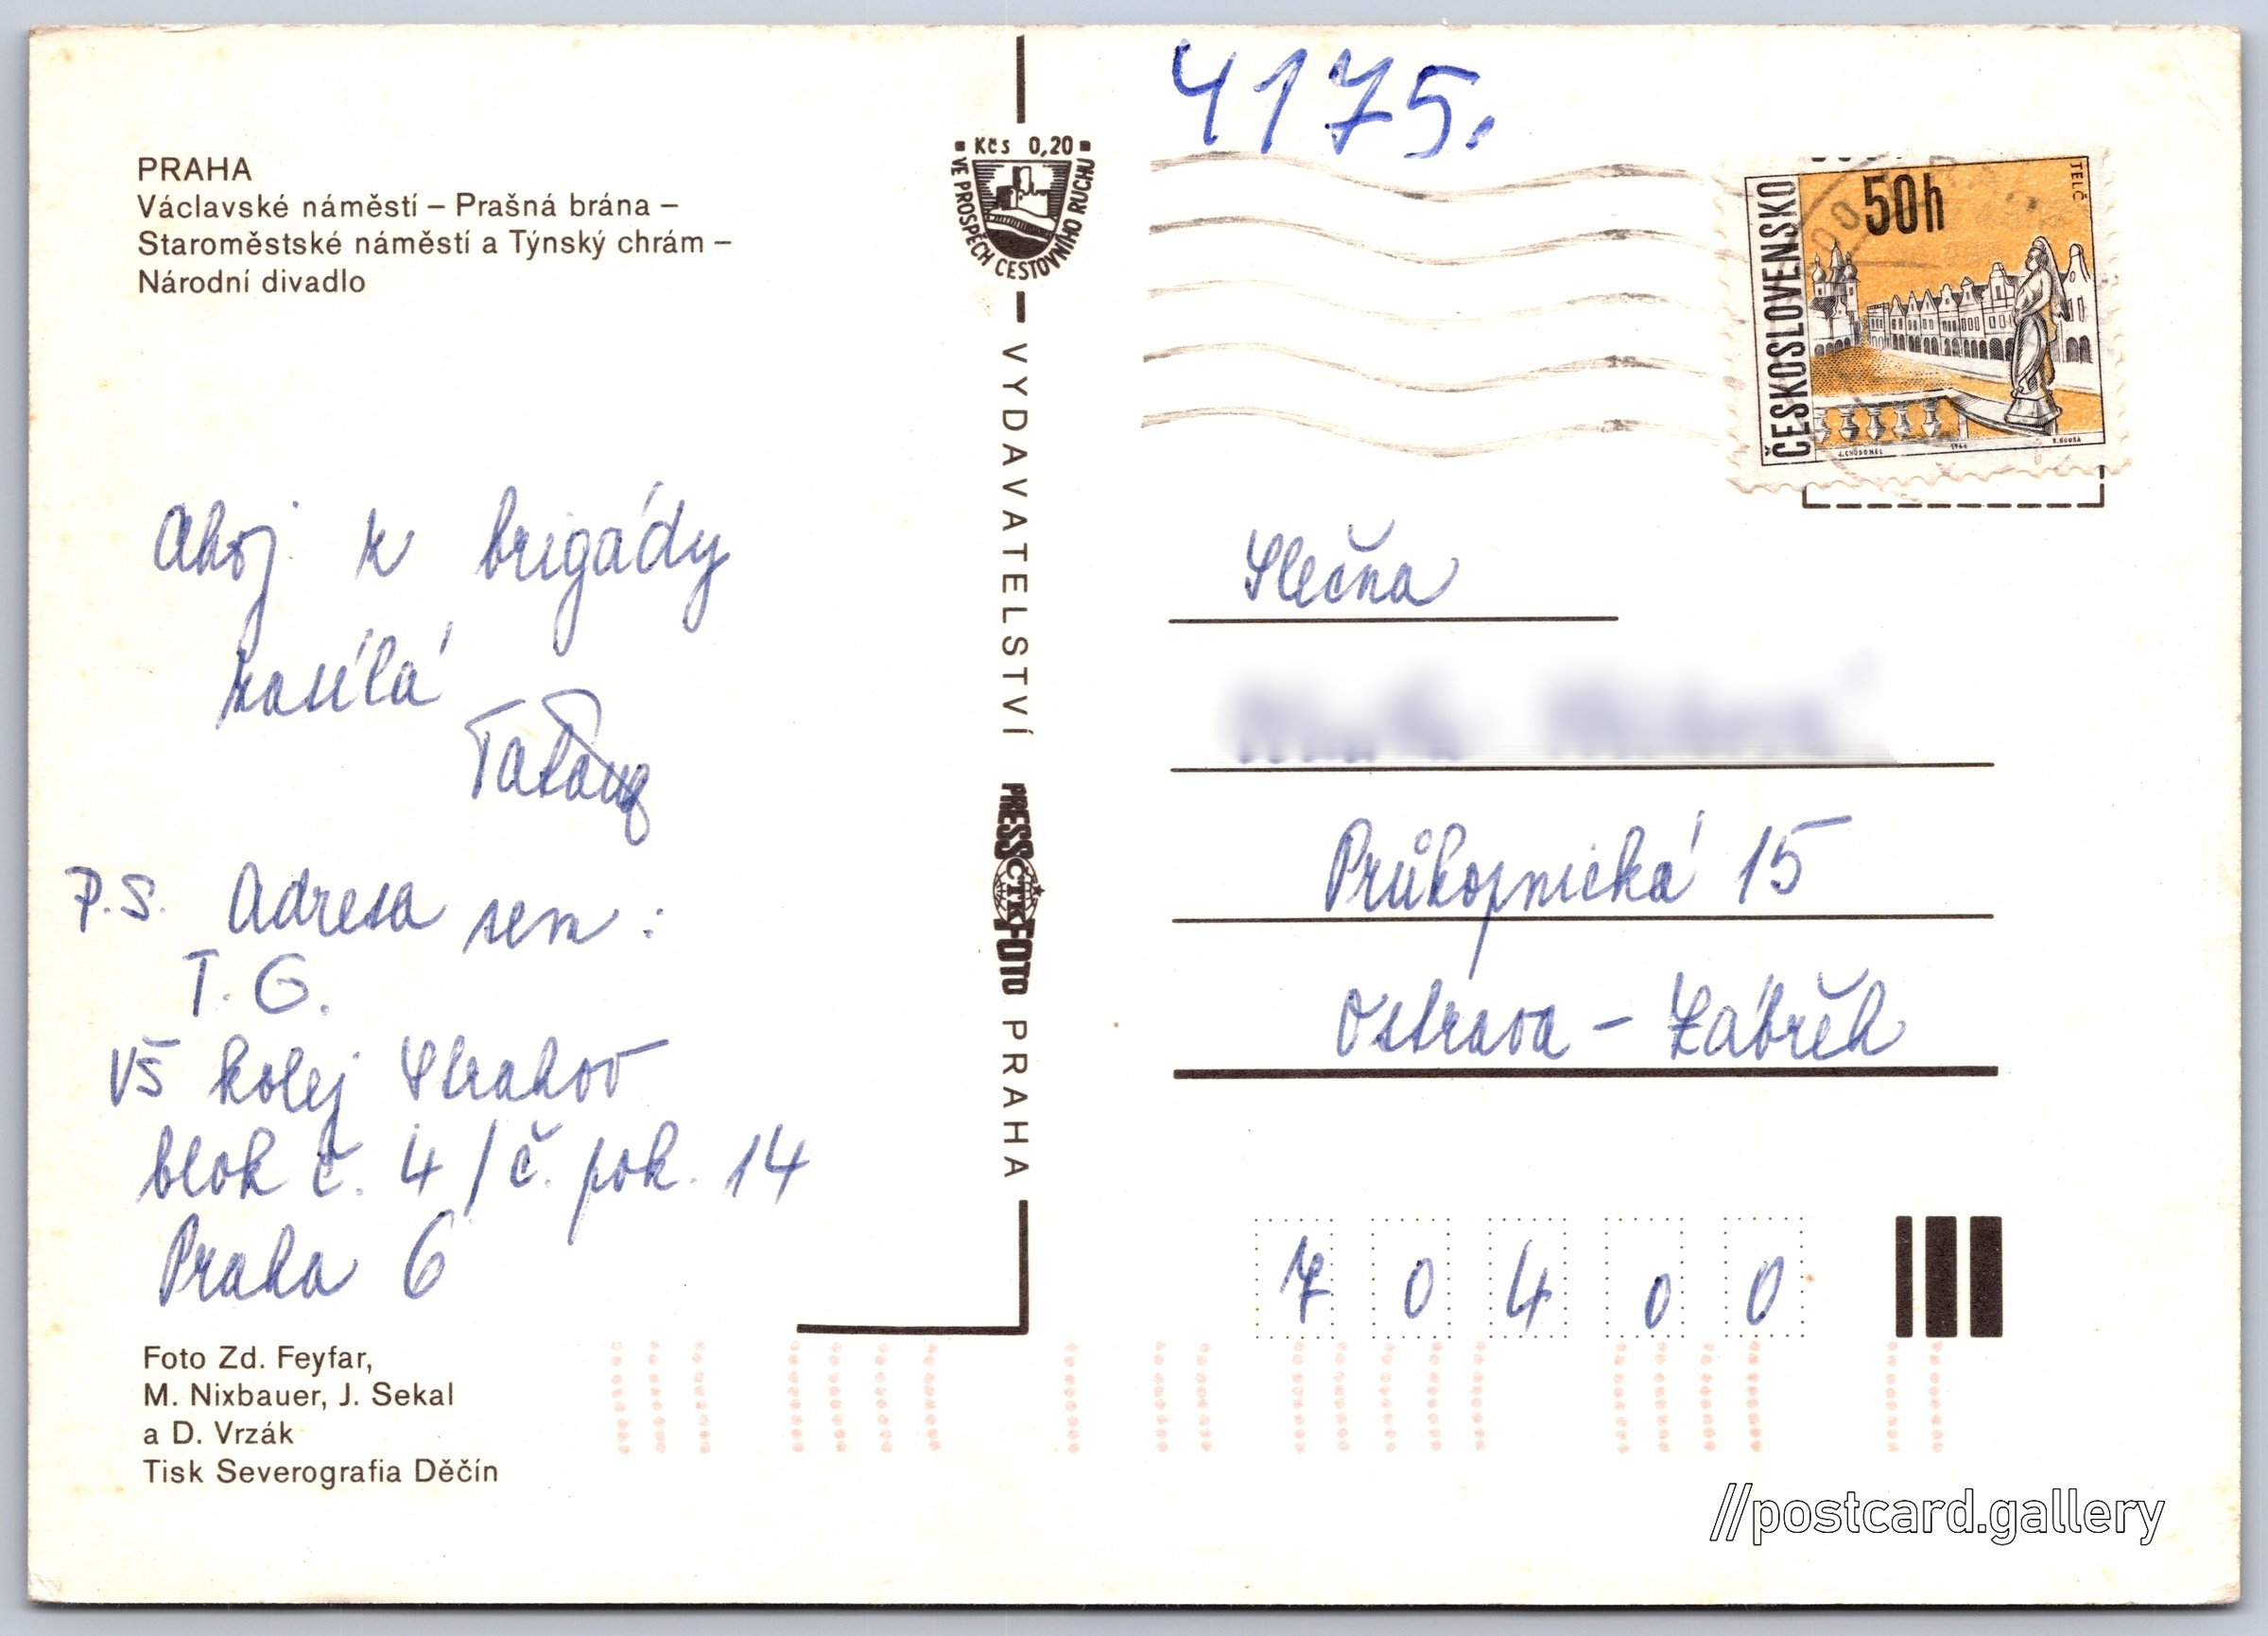 PRAHA
Václavské náměstí – Prašná brána –
Staroměstské náměstí a Týnský chrám –
Národní divadlo
Ahoj z brigády
zasílá
P.S. Adresa sem:
T. G.
VŠ kolej Strahov
blok č. 4 / č. pok. 14
Praha 6
Foto Zd. Feyfar,
M. Nixbauer, J. Sekal
a D. Vrzák
Tisk Severografia Děčín
Kčs 0,20
VE PROSPĚCH CESTOVNÍHO RUCHU
VYDAVATELSTVÍ PRESSFOTO PRAHA
ČTK
4175.
ČESKOSLOVENSKO
50h
TELČ
J. CHUDOMEL 1966 B. HOUSA
Slečna
Průkopnická 15
Ostrava – Zábřeh
7 0 4 0 0
//postcard.gallery